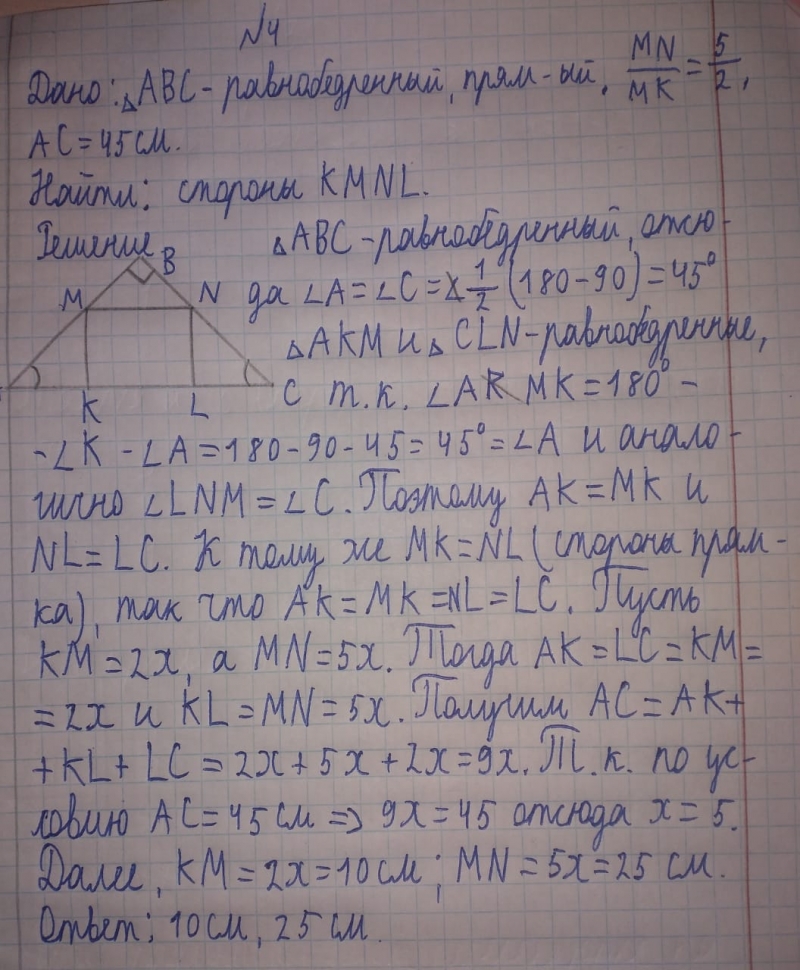 №4
Дано: △ABC - равнобедренный, прям-ый, MN/MK = 5/2,
AC = 45 см.
Найти: стороны KMNL.
Решение △ABC - равнобедренный, отсю-
B
M N да ∠A = ∠C = 1/2 (180-90) = 45°
△AKM и △CLN - равнобедренные,
C т.к. ∠AMK = 180° -
K L
- ∠K - ∠A = 180-90-45 = 45° = ∠A и анало-
гично ∠LNM = ∠C. Поэтому AK = MK и
NL = LC. К тому же MK = NL (стороны прям-
ка), так что AK = MK = NL = LC. Пусть
KM = 2x, а MN = 5x. Тогда AK = LC = KM =
= 2x и KL = MN = 5x. Получим AC = AK+
+KL+LC = 2x+5x+2x = 9x. Т.к. по ус-
ловию AC = 45 см => 9x = 45 отсюда x = 5.
Далее, KM = 2x = 10 см; MN = 5x = 25 см.
Ответ: 10 см, 25 см.